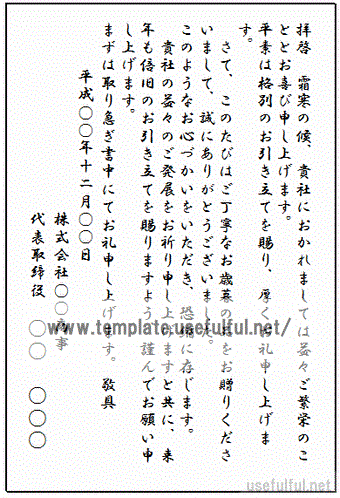 拝啓　霜寒の候、貴社におかれましては益々ご繁栄のこ
ととお喜び申し上げます。
平素は格別のお引き立てを賜り、厚くお礼申し上げま
す。
さて、このたびはご丁寧なお歳暮の品をお贈りくださ
いまして、誠にありがとうございました。
このようなお心づかいをいただき、恐縮に存じます。
貴社の益々のご発展をお祈り申し上げますと共に、来
年も倍旧のお引き立てを賜りますよう謹んでお願い申
し上げます。
まずは取り急ぎ書中にてお礼申し上げます。　敬具
平成〇〇年十二月〇〇日
株式会社〇〇商事
代表取締役　〇〇　〇〇〇
www.template.usefulful.net/
usefulful.net